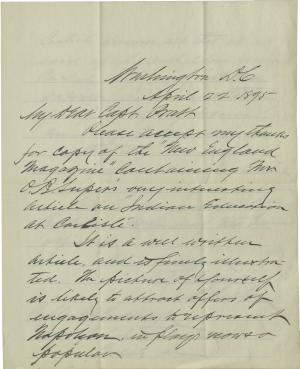 Washington D.C
April 22 1895
My Dear Capt. Pratt
Please accept my thanks
for copy of the "New England
Magazine" containing Mr.
O.B. Super's very interesting
article on Indian Education
at Carlisle.
It is a well written
article, and is finely illustra-
ted. The picture of yourself
is likely to attract offers of
engagements to represent
Napoleon, in plays now so
popular